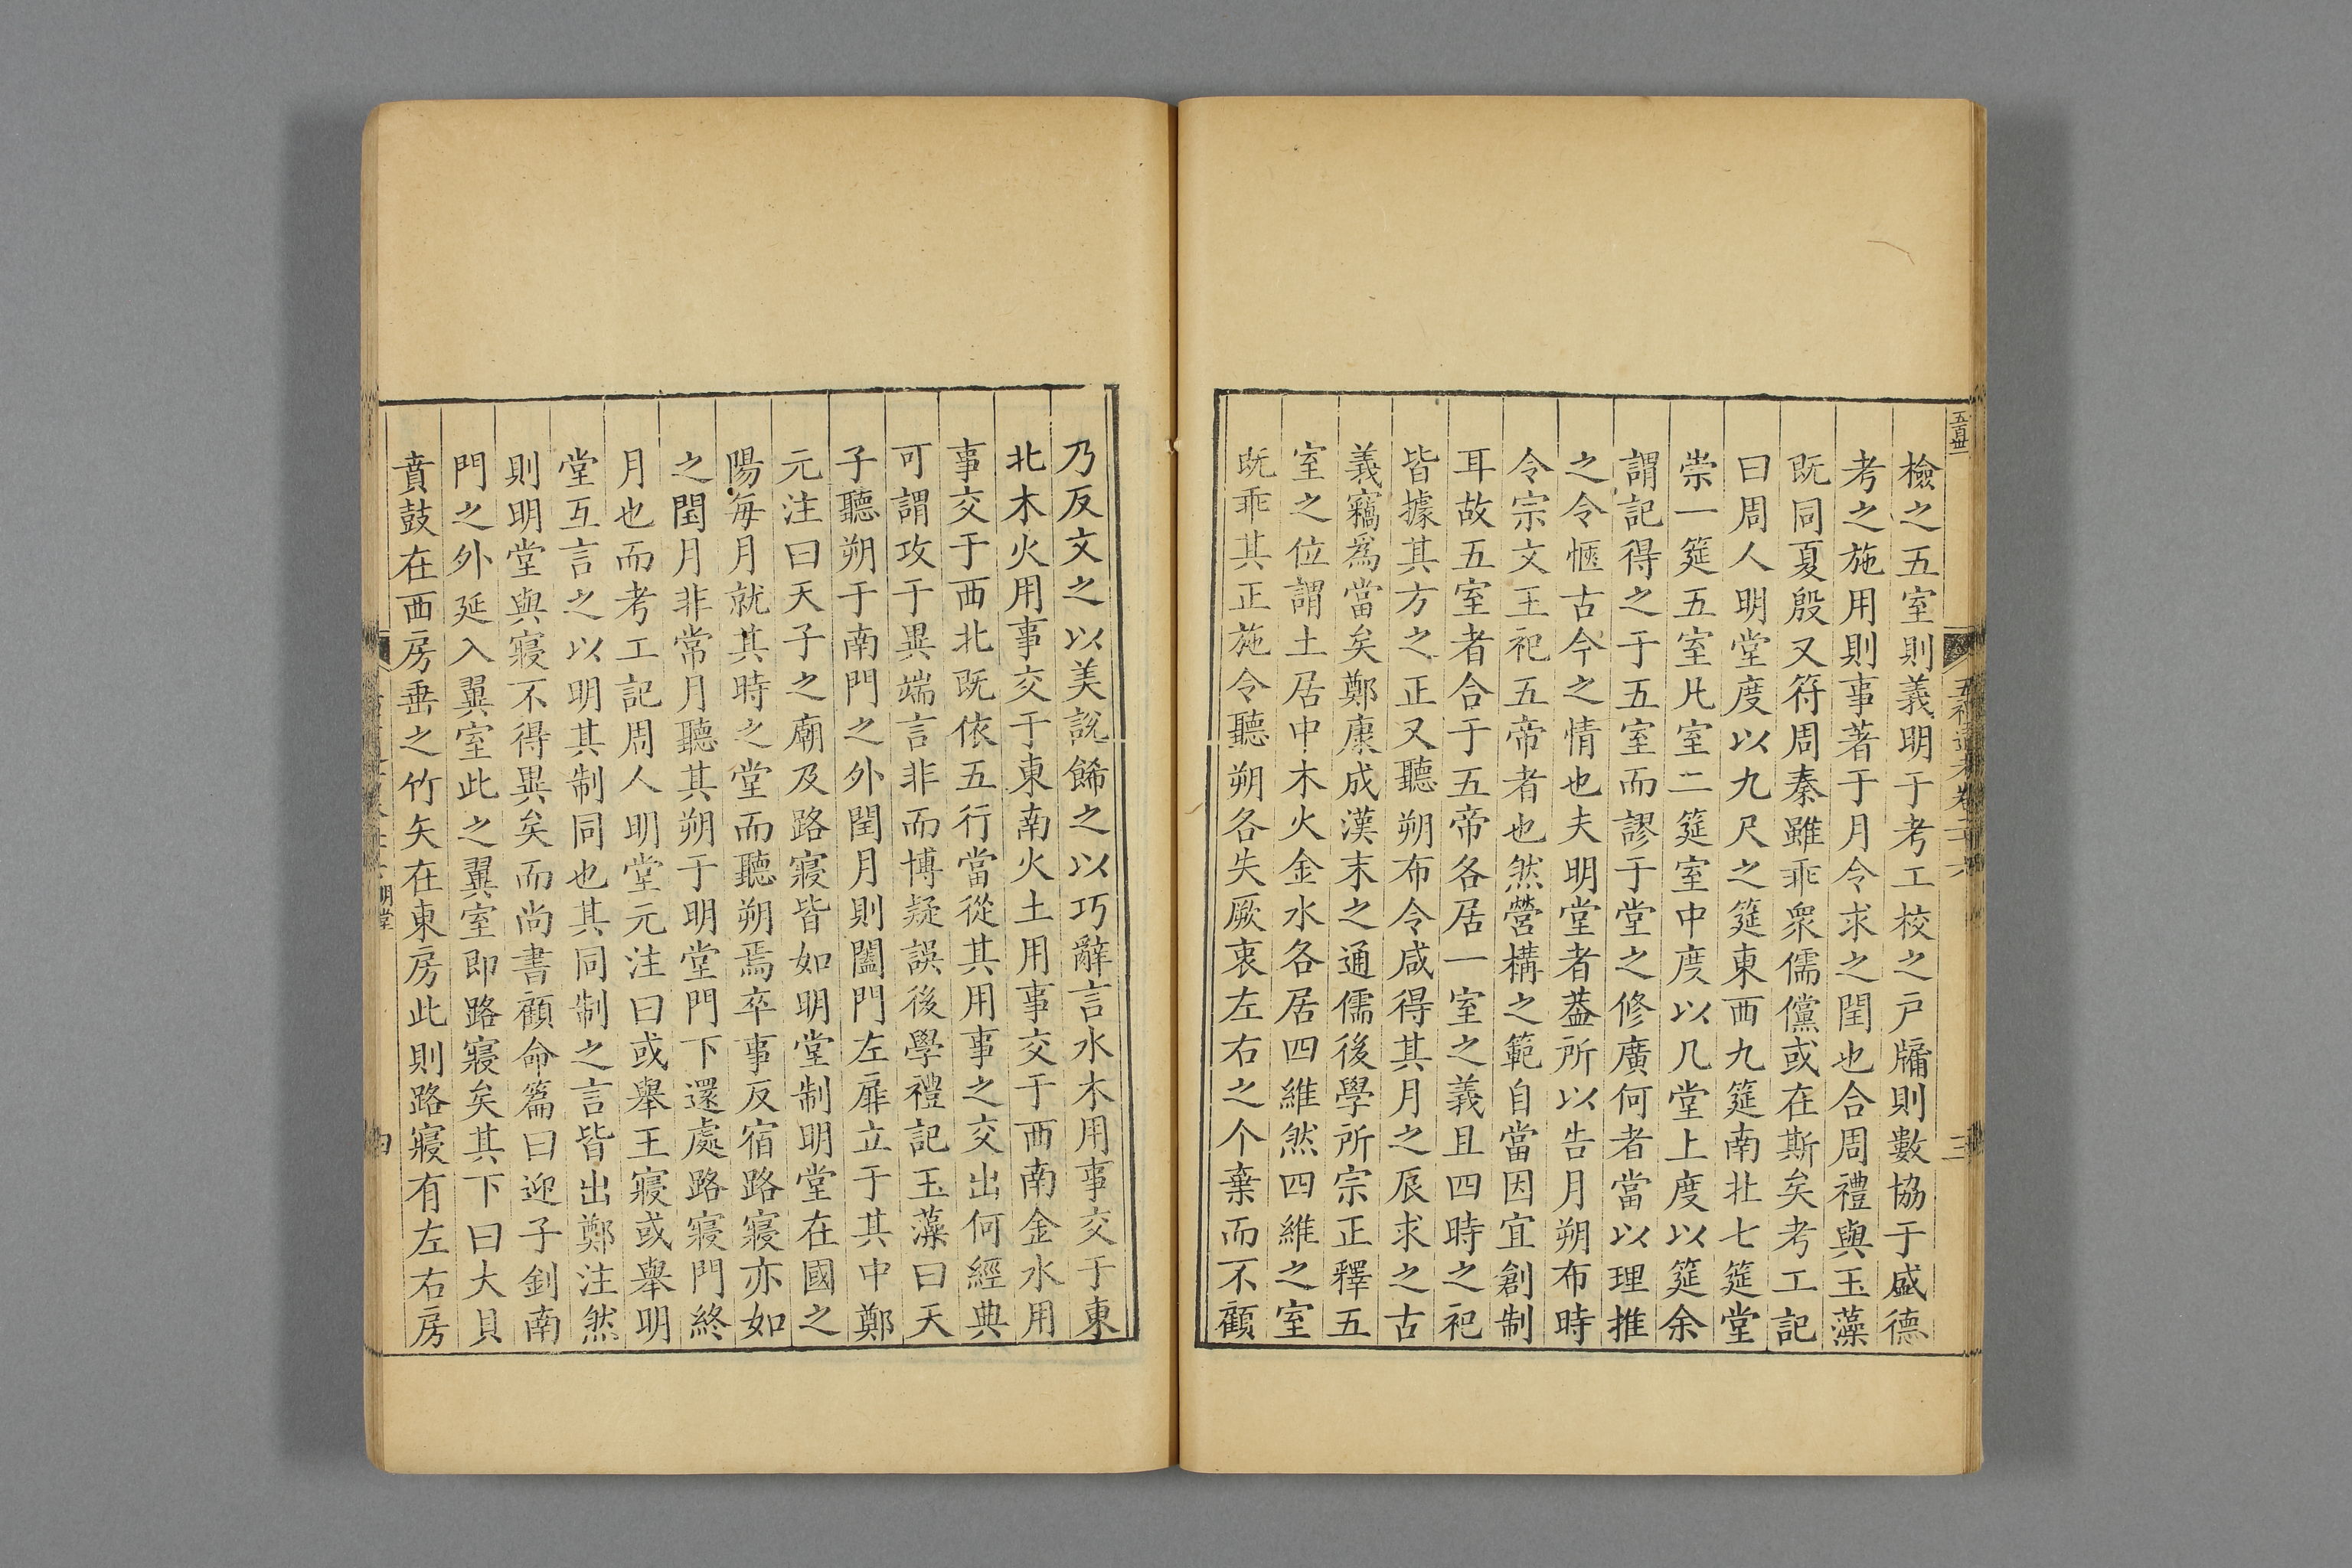 檢之五室則義明于考工校之戸牖則數協于盛德
考之施用則事著于月令求之閏也合周禮與玉藻
既同夏殷又符周秦雖乖衆儒儻或在斯矣考工記
曰周人明堂度以九尺之筵東西九筵南北七筵堂
崇一筵五室凡室二筵室中度以几堂上度以筵余
謂記得之于五室而謬于堂之修廣何者當以理推
之令愜古今之情也夫明堂者葢所以告月朔布時
令宗文王祀五帝者也然營構之範自當因宜創制
耳故五室者合于五帝各居一室之義且四時之祀
皆據其方之正又聽朔布令咸得其月之辰求之古
義竊爲當矣鄭康成漢末之通儒後學所宗正釋五
室之位謂土居中木火金水各居四維然四維之室
既乖其正施令聽朔各失厥衷左右之个棄而不顧
乃反文之以美說飾之以巧辭言水木用事交于東
北木火用事交于東南火土用事交于西南金水用
事交于西北既依五行當從其用事之交出何經典
可謂攻于異端言非而博疑誤後學禮記玉藻曰天
子聽朔于南門之外閏月則闔門左扉立于其中鄭
元注曰天子之廟及路寢皆如明堂制明堂在國之
陽每月就其時之堂而聽朔焉卒事反宿路寢亦如
之閏月非常月聽其朔于明堂門下還處路寢門終
月也而考工記周人明堂元注曰或舉王寢或舉明
堂互言之以明其制同也其同制之言皆出鄭注然
則明堂與寢不得異矣而尚書顧命篇曰迎子釗南
門之外延入翼室此之翼室即路寢矣其下曰大貝
賁鼓在西房垂之竹矢在東房此則路寢有左右房